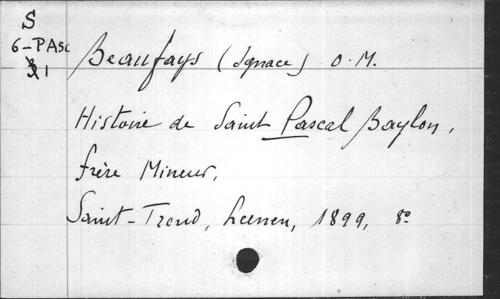 S
6-PASC
31
Beaufays (Ignace) O.M.
Histoire de Saint Pascal Baylon,
frère Mineur,
Saint-Trond, Leenen, 1899, 8°